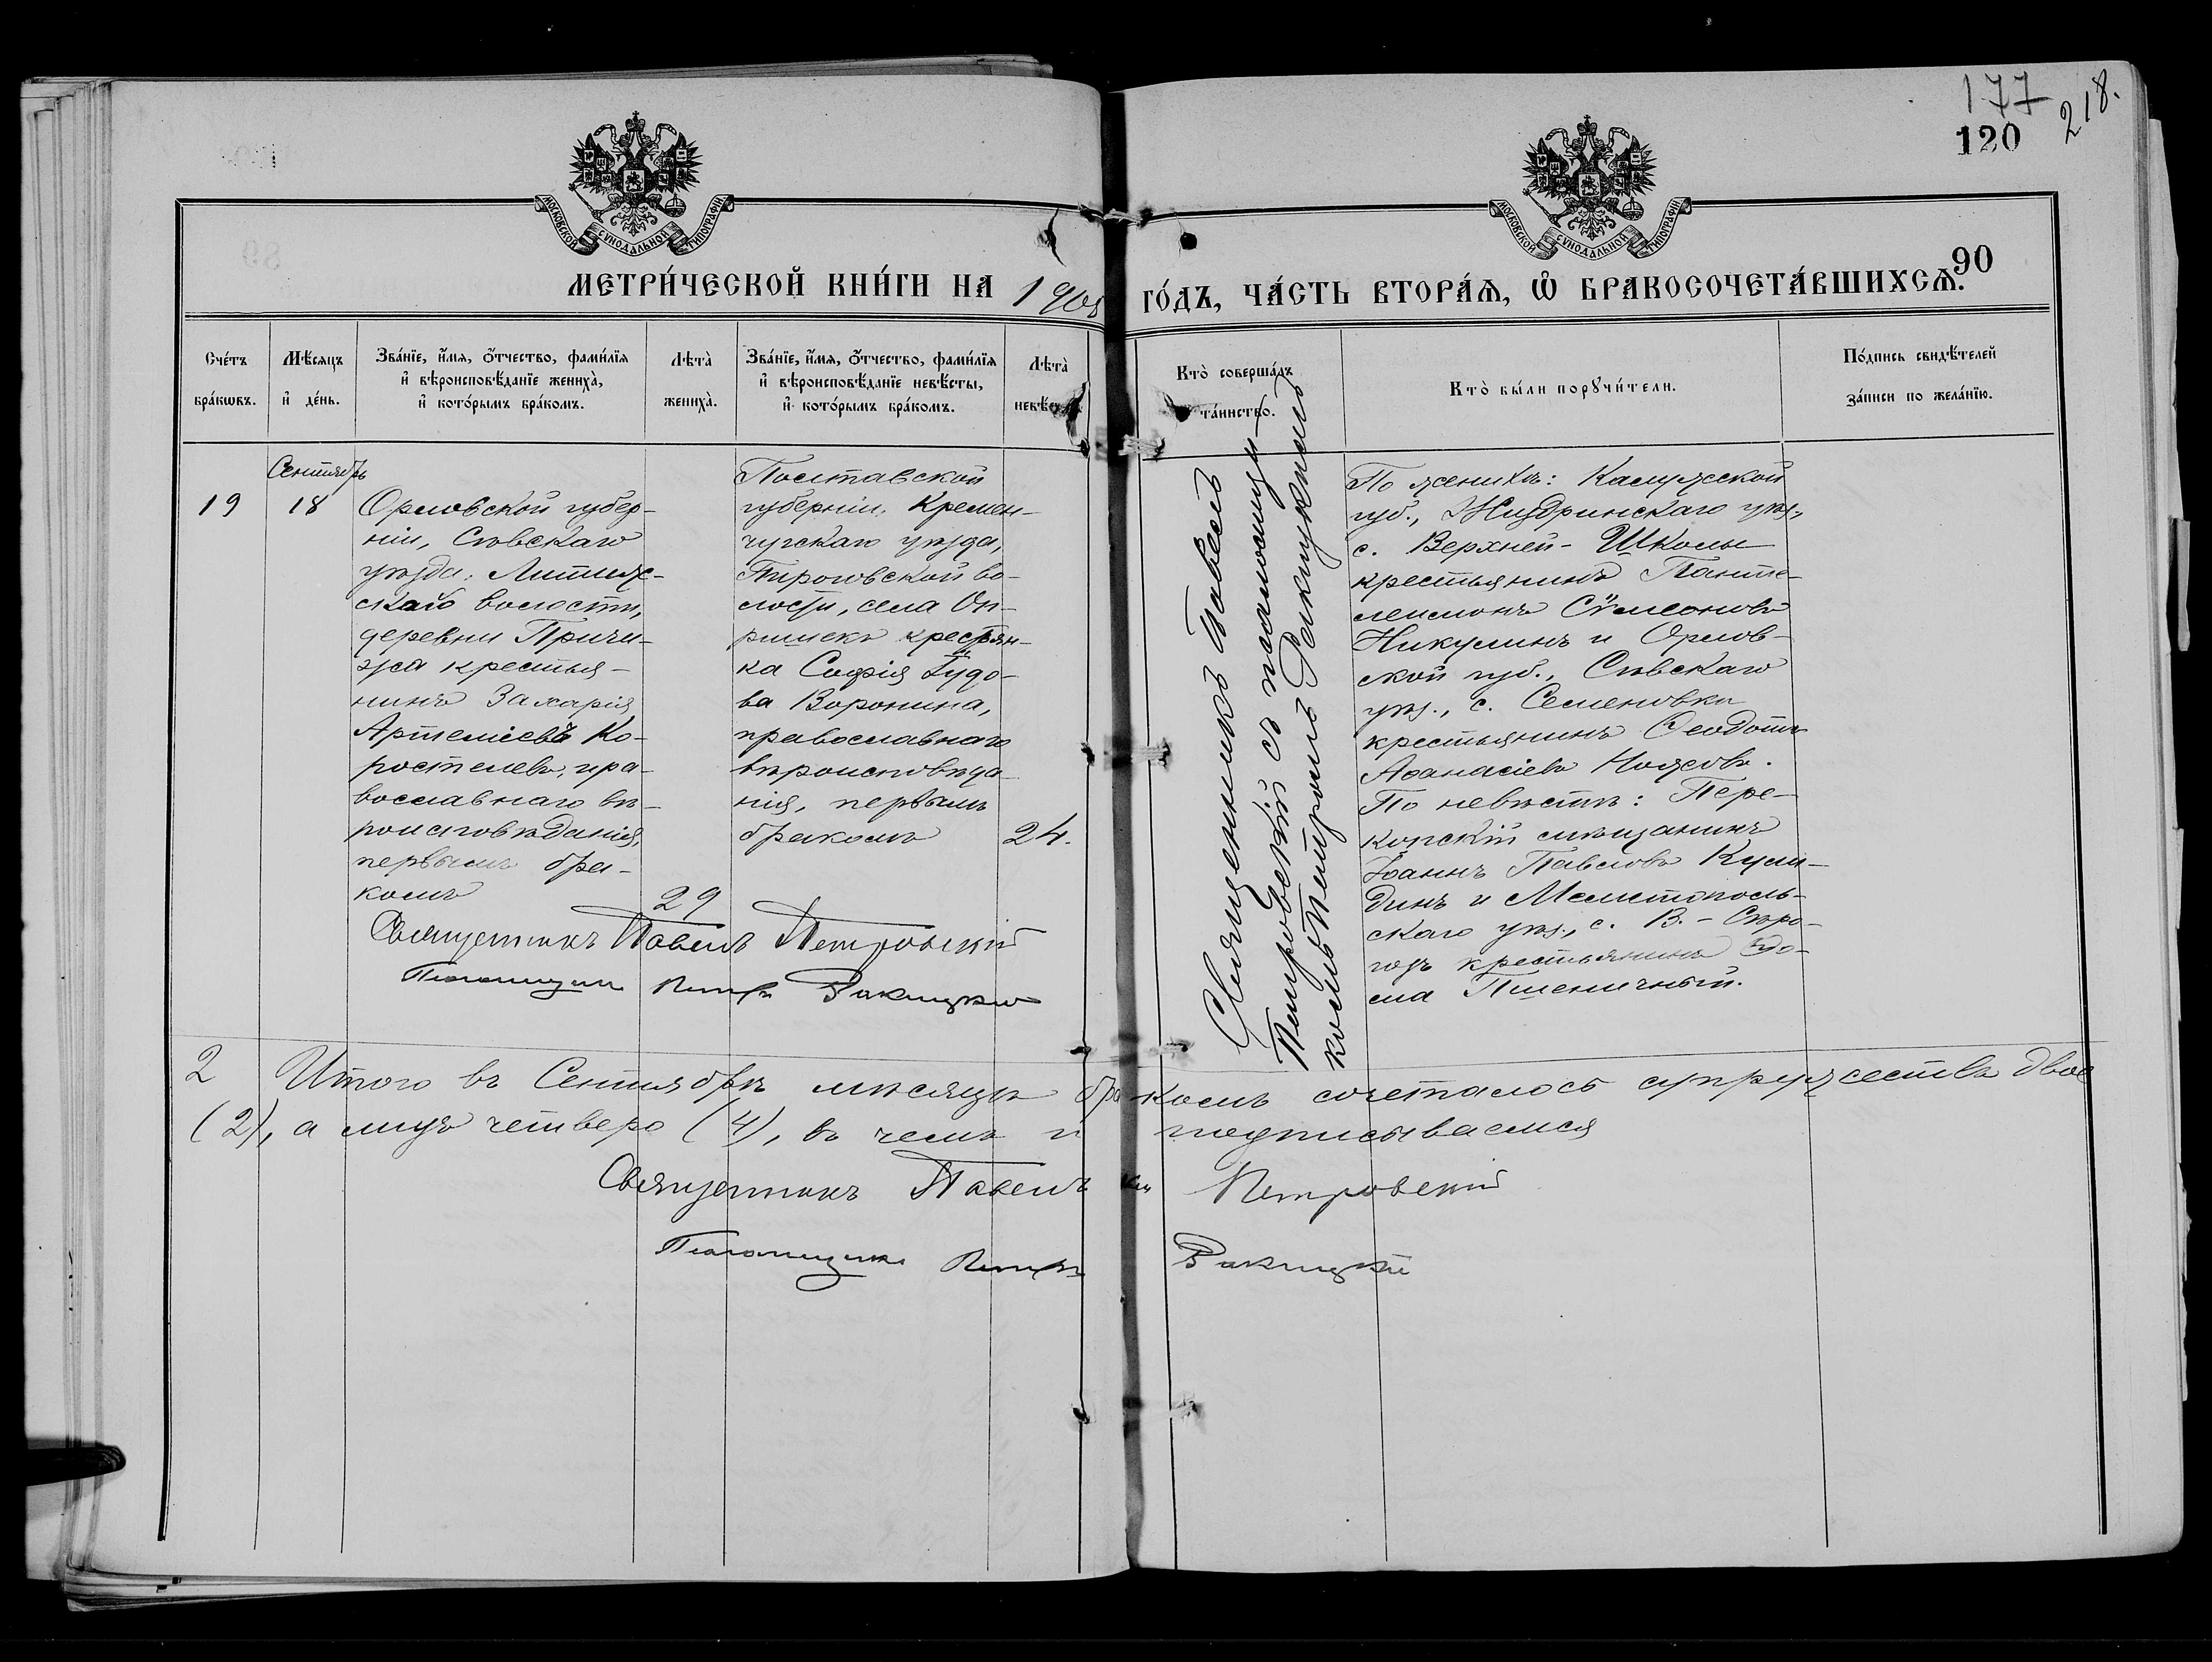 177
218.
120
МОСКОВСКОЙ СѴНОДАЛЬНОЙ ТИПОГРАФІИ
МОСКОВСКОЙ СѴНОДАЛЬНОЙ ТИПОГРАФІИ
90
МЕТРИ́ЧЕСКОЙ КНИ́ГИ НА 1908 ГО́ДЪ, ЧА́СТЬ ВТОРА́Ѧ, Ѡ БРАКОСОЧЕТА́ВШИХСѦ.
Сче́тъ
бра́кѡвъ.
Мѣ́сяцъ
и҆ де́нь.
Зва́нїе, и҆́мя, ѻ҆́тчество, фами́лїя
и҆ вѣроисповѣ́данїе жениха̀,
и҆ кото́рымъ бра́комъ.
Лѣта̀
жениха̀.
Зва́нїе, и҆́мя, ѻ҆́тчество, фами́лїя
и҆ вѣроисповѣ́данїе невѣ́сты,
и҆ кото́рымъ бра́комъ.
Лѣта̀
Кто̀ соверша́лъ
та́инство.
Кто̀ бы́ли порꙋчи́тели.
По́дпись свидѣ́телей
за́писи по жела́нїю.
19
Сентябрь
18
Орловской губер-
ніи, Сѣвскаго
уѣзда,
скаго волости,
деревни Причи-
жа крестья-
нинъ Захарія
Артеміевъ Ко-
ростелевъ, пра-
вославнаго вѣ-
роисповѣданія,
первымъ бра-
комъ
29
Полтавской
губерніи, Кремен-
чугскаго уѣзда,
Пироговской во-
лости, села Он-
ришекъ крестьян-
ка Софія
ва Воронина,
православнаго
вѣроисповѣда-
нія, первымъ
бракомъ
24.
Священникъ Павелъ Петровскій
Псаломщикъ Петръ Ракицкій
Священникъ Павелъ
Петровскій съ псаломщи-
комъ Петромъ Ракицкимъ
По женихѣ: Калужской
губ., Жиздринскаго уѣз.,
с. Верхней-Школы
крестьянинъ Панте-
леимонъ Сѵмеоновъ
Никулинъ и Орлов-
ской губ., Сѣвскаго
уѣз., с. Семеновки
крестьянинъ Ѳеодотъ
Аѳанасіевъ Ножовъ.
По невѣстѣ: Пере-
копскій мѣщанинъ
Іоаннъ Павловъ Кули-
динъ и Мелитополь-
скаго уѣз., с. В.-Сѣро-
гозъ крестьянинъ Ѳо-
ма Пшеничный.
2 Итого въ Сентябрѣ мѣсяцѣ бракомъ сочеталось супружествъ двое
(2), а лицъ четверо (4), въ чемъ и подписываемся
Священникъ Павелъ Петровскій
Псаломщикъ Петръ Ракицкій